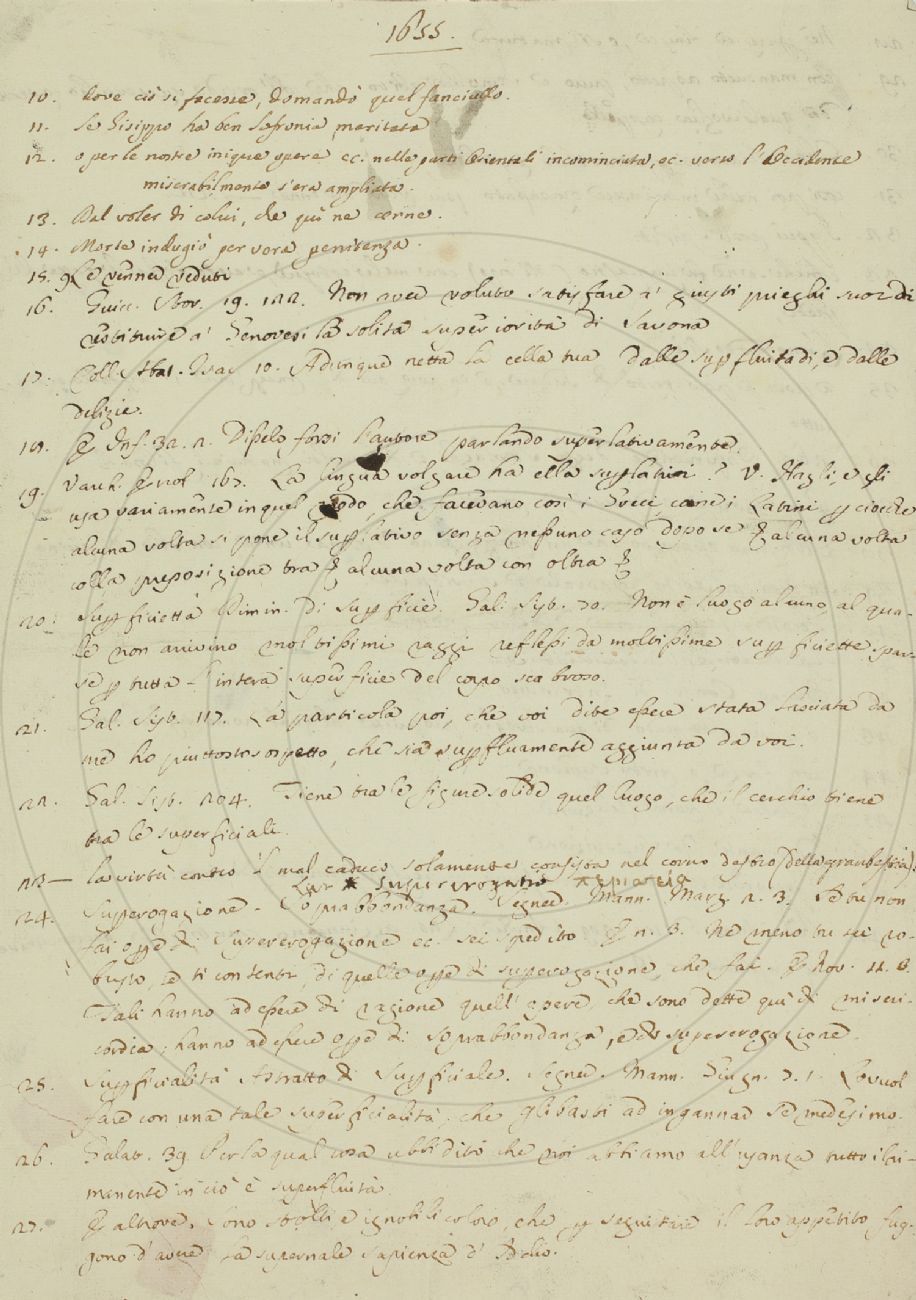 1655.
10. dove ciò si facesse, domandò quel fanciullo.
11. se Gisippo ha ben Sofronia meritata
12. o per le nostre inique opere ec. nelle parti Orientali incominciata, ec. verso l'Occidente
miserabilmente s'era ampliata.
13. Dal voler di colui, che quì ne cerne.
14. Morte indugiò per vera penitenza.
15. Le venner veduti
16. Guicc. Stor. 19. 122. Non aver voluto satisfare a' giusti prieghi suoi di
restituire a' Genovesi la solita superiorità di Savona
17. Coll. Abat. Isac 10. Adunque netta la cella tua dalle supfluitadi, e dalle
delizie.
18. E Inf. 32. 2. Dispelo forsi l'autore parlando superlativamente.
19. Varch. Ercol 167. La lingua volgare ha ella suplativi? V. Hagli, e gli
usa variamente in quel modo, che facevano così i Greci, come i Latini pciocche
alcuna volta si pone il supplativo senza nessuno caso dopo se E alcuna volta
colla preposizione tra E alcuna volta con oltra E
20. Suppficietta Dimin. di Suppficie. Gal. Sist. 70. Non è luogo alcuno, al qua-
le non arrivino moltissimi raggi reflessi da moltissime suppficiette spar-
se p tutta l'intera superficie del corpo scabroso.
21. Gal. Sist. 117. La particola poi, che voi dite essere stata lasciata da
me ho piuttosto sospetto, che sia suppfluamente aggiunta da voi.
22. Gal. Sist. 204. Tiene tra le figure solide quel luogo, che il cerchio tiene
tra le superficiali.
23— la virtù contro 'l mal caduco solamente consista nel corno destro (della granbestia).
Lat * Supererogatio
24. Superogazione - Soprabbondanza. Segner. Mann. Marz. 2. 3. Se tu non
fai oppe di Supererogazione ec. sei spedito E n. 3. Ne meno tu sei ro-
busto, se ti contenti di quelle oppe di superogazione, che fai. E Nov. 11. 6.
Tali hanno ad essere di ragione quell'opere, che sono dette quì di miseri-
cordia; hanno ad essere oppe di soprabbondanza, e di supererogazione.
25. Suppficialità Astratto di Suppficiale. Segner. Mann. Giugn. 7. 1. Lo vuol
fare con una tale superficialità, che gli basti ad ingannar se medesimo.
26. Galat. 39 Per la qual cosa ubbidito che noi abbiamo all'usanza tutto il ri-
manente in ciò è superfluità.
27. E altrove. Sono stolti, e ignobili coloro, che p seguitare il loro appetito fug-
gono d'avere la supernale sapienza d'Iddio.